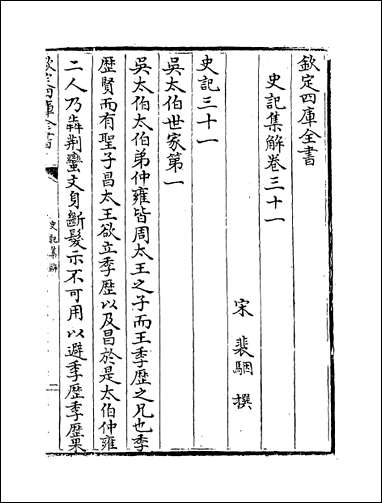 欽定四庫全書
史記集解卷三十一
宋 裴駰 撰
史記三十一
吳太伯世家第一
吳太伯太伯弟仲雍皆周太王之子而王季歷之兄也季
歷賢而有聖子昌太王欲立季歷以及昌於是太伯仲雍
二人乃犇荆蠻文身斷髮示不可用以避季歷季歷果
欽定四庫全書
史記集解